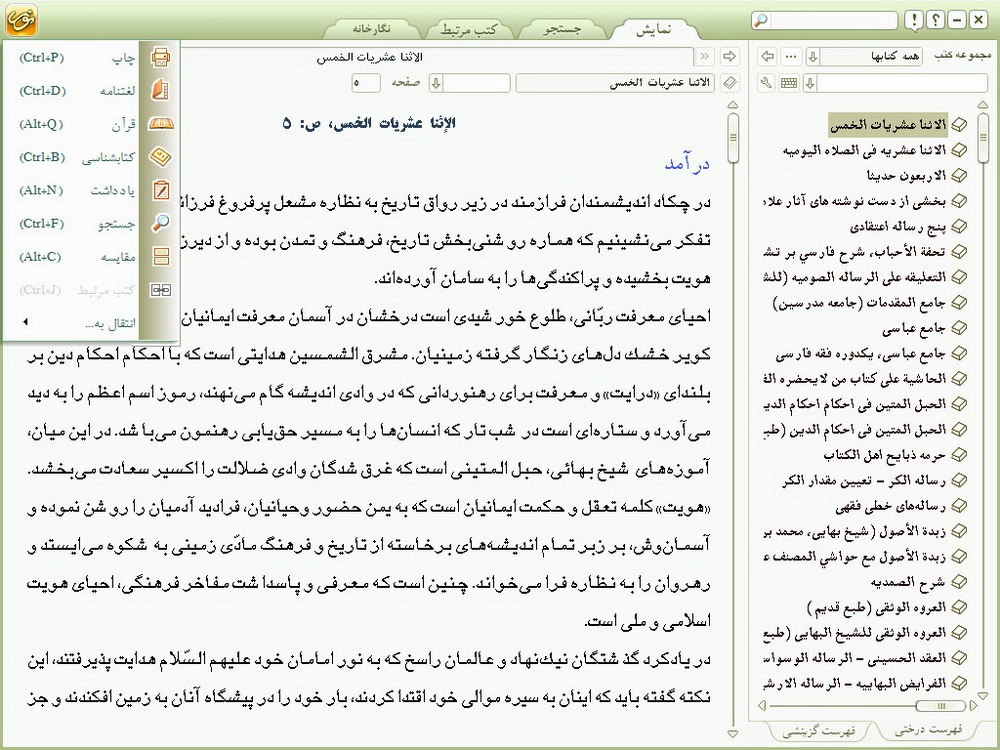 نمایش
جستجو
کتب مرتبط
نگارخانه
مجموعه کتب
همه کتابها
الاثنا عشریات الخمس
الاثنا عشریه فی الصلاه الیومیه
الاربعون حدیثا
بخشی از دست نوشته های آثار علا
پنج رساله اعتقادی
تحفة الأحباب، شرح فارسي بر تش
التعلیقه علی الرساله الصومیه (للش
جامع المقدمات (جامعه مدرسین)
جامع عباسی
جامع عباسی، یکدوره فقه فارسی
الحاشیة علی کتاب من لایحضره الف
الحبل المتین فی احکام احکام الدی
الحبل المتین فی احکام الدین (طبع
حرمه ذبایح اهل الکتاب
رساله الکر - تعیین مقدار الکر
رساله‌های خطی فقهی
زبدة الأصول (شیخ بهایی، محمد بر
زبدة الأصول مع حواشي المصنف ع
شرح الصمدیه
العروه الوثقی (طبع قدیم)
العروه الوثقی للشیخ البهایی (طبع
العقد الحسینی - الرساله الوسواس
الفرایض البهاییه - الرساله الارش
فهرست درختی
فهرست گزینشی
الاثنا عشریات الخمس
الاثنا عشریات الخمس
صفحه
۵
الإثنا عشریات الخمس، ص: ۵
درآمد
در چکاد اندیشمندان فرازمند در زیر رواق تاریخ به نظاره مشعل پرفروغ فرزان
تفکر می‌نشینیم که هماره روشنی‌بخش تاریخ، فرهنگ و تمدن بوده و از دیرز
هویت بخشیده و پراکندگی‌ها را به سامان آورده‌اند.
احیای معرفت ربّانی، طلوع خورشیدی است درخشان در آسمان معرفت ایمانیان
کویر خشك دل‌های زنگار گرفته زمینیان. مشرق الشمسین هدایتی است که با احکام احکام دین بر
بلندای «درایت» و معرفت برای رهنوردانی که در وادی اندیشه گام می‌نهند، رموز اسم اعظم را به دید
می‌آورد و ستاره‌ای است در شب تار که انسان‌ها را به مسیر حق‌یابی رهنمون می‌باشد. در این میان،
آموزه‌های شیخ بهائی، حبل المتینی است که غرق شدگان وادی ضلالت را اکسیر سعادت می‌بخشد.
«هویت» کلمه تعقل و حکمت ایمانیان است که به یمن حضور وحیانیان، فرادید آدمیان را روشن نموده و
آسمان‌وش، بر زبر تمام اندیشه‌های برخاسته از تاریخ و فرهنگ مادّی زمینی به شکوه می‌ایستد و
رهروان را به نظاره فرا می‌خواند. چنین است که معرفی و پاسداشت مفاخر فرهنگی، احیای هویت
اسلامی و ملی است.
در یادکرد گذشتگان نیك‌نهاد و عالمان راسخ که به نور امامان خود علیهم السّلام هدایت پذیرفتند، این
نکته گفته باید که اینان به سیره موالی خود اقتدا کردند، بار خود را در پیشگاه آنان به زمین افکندند و جز
چاپ (Ctrl+P)
لغتنامه (Ctrl+D)
قرآن (Alt+Q)
کتابشناسی (Ctrl+B)
یادداشت (Alt+N)
جستجو (Ctrl+F)
مقایسه (Alt+C)
کتب مرتبط (Ctrl+J)
انتقال به...